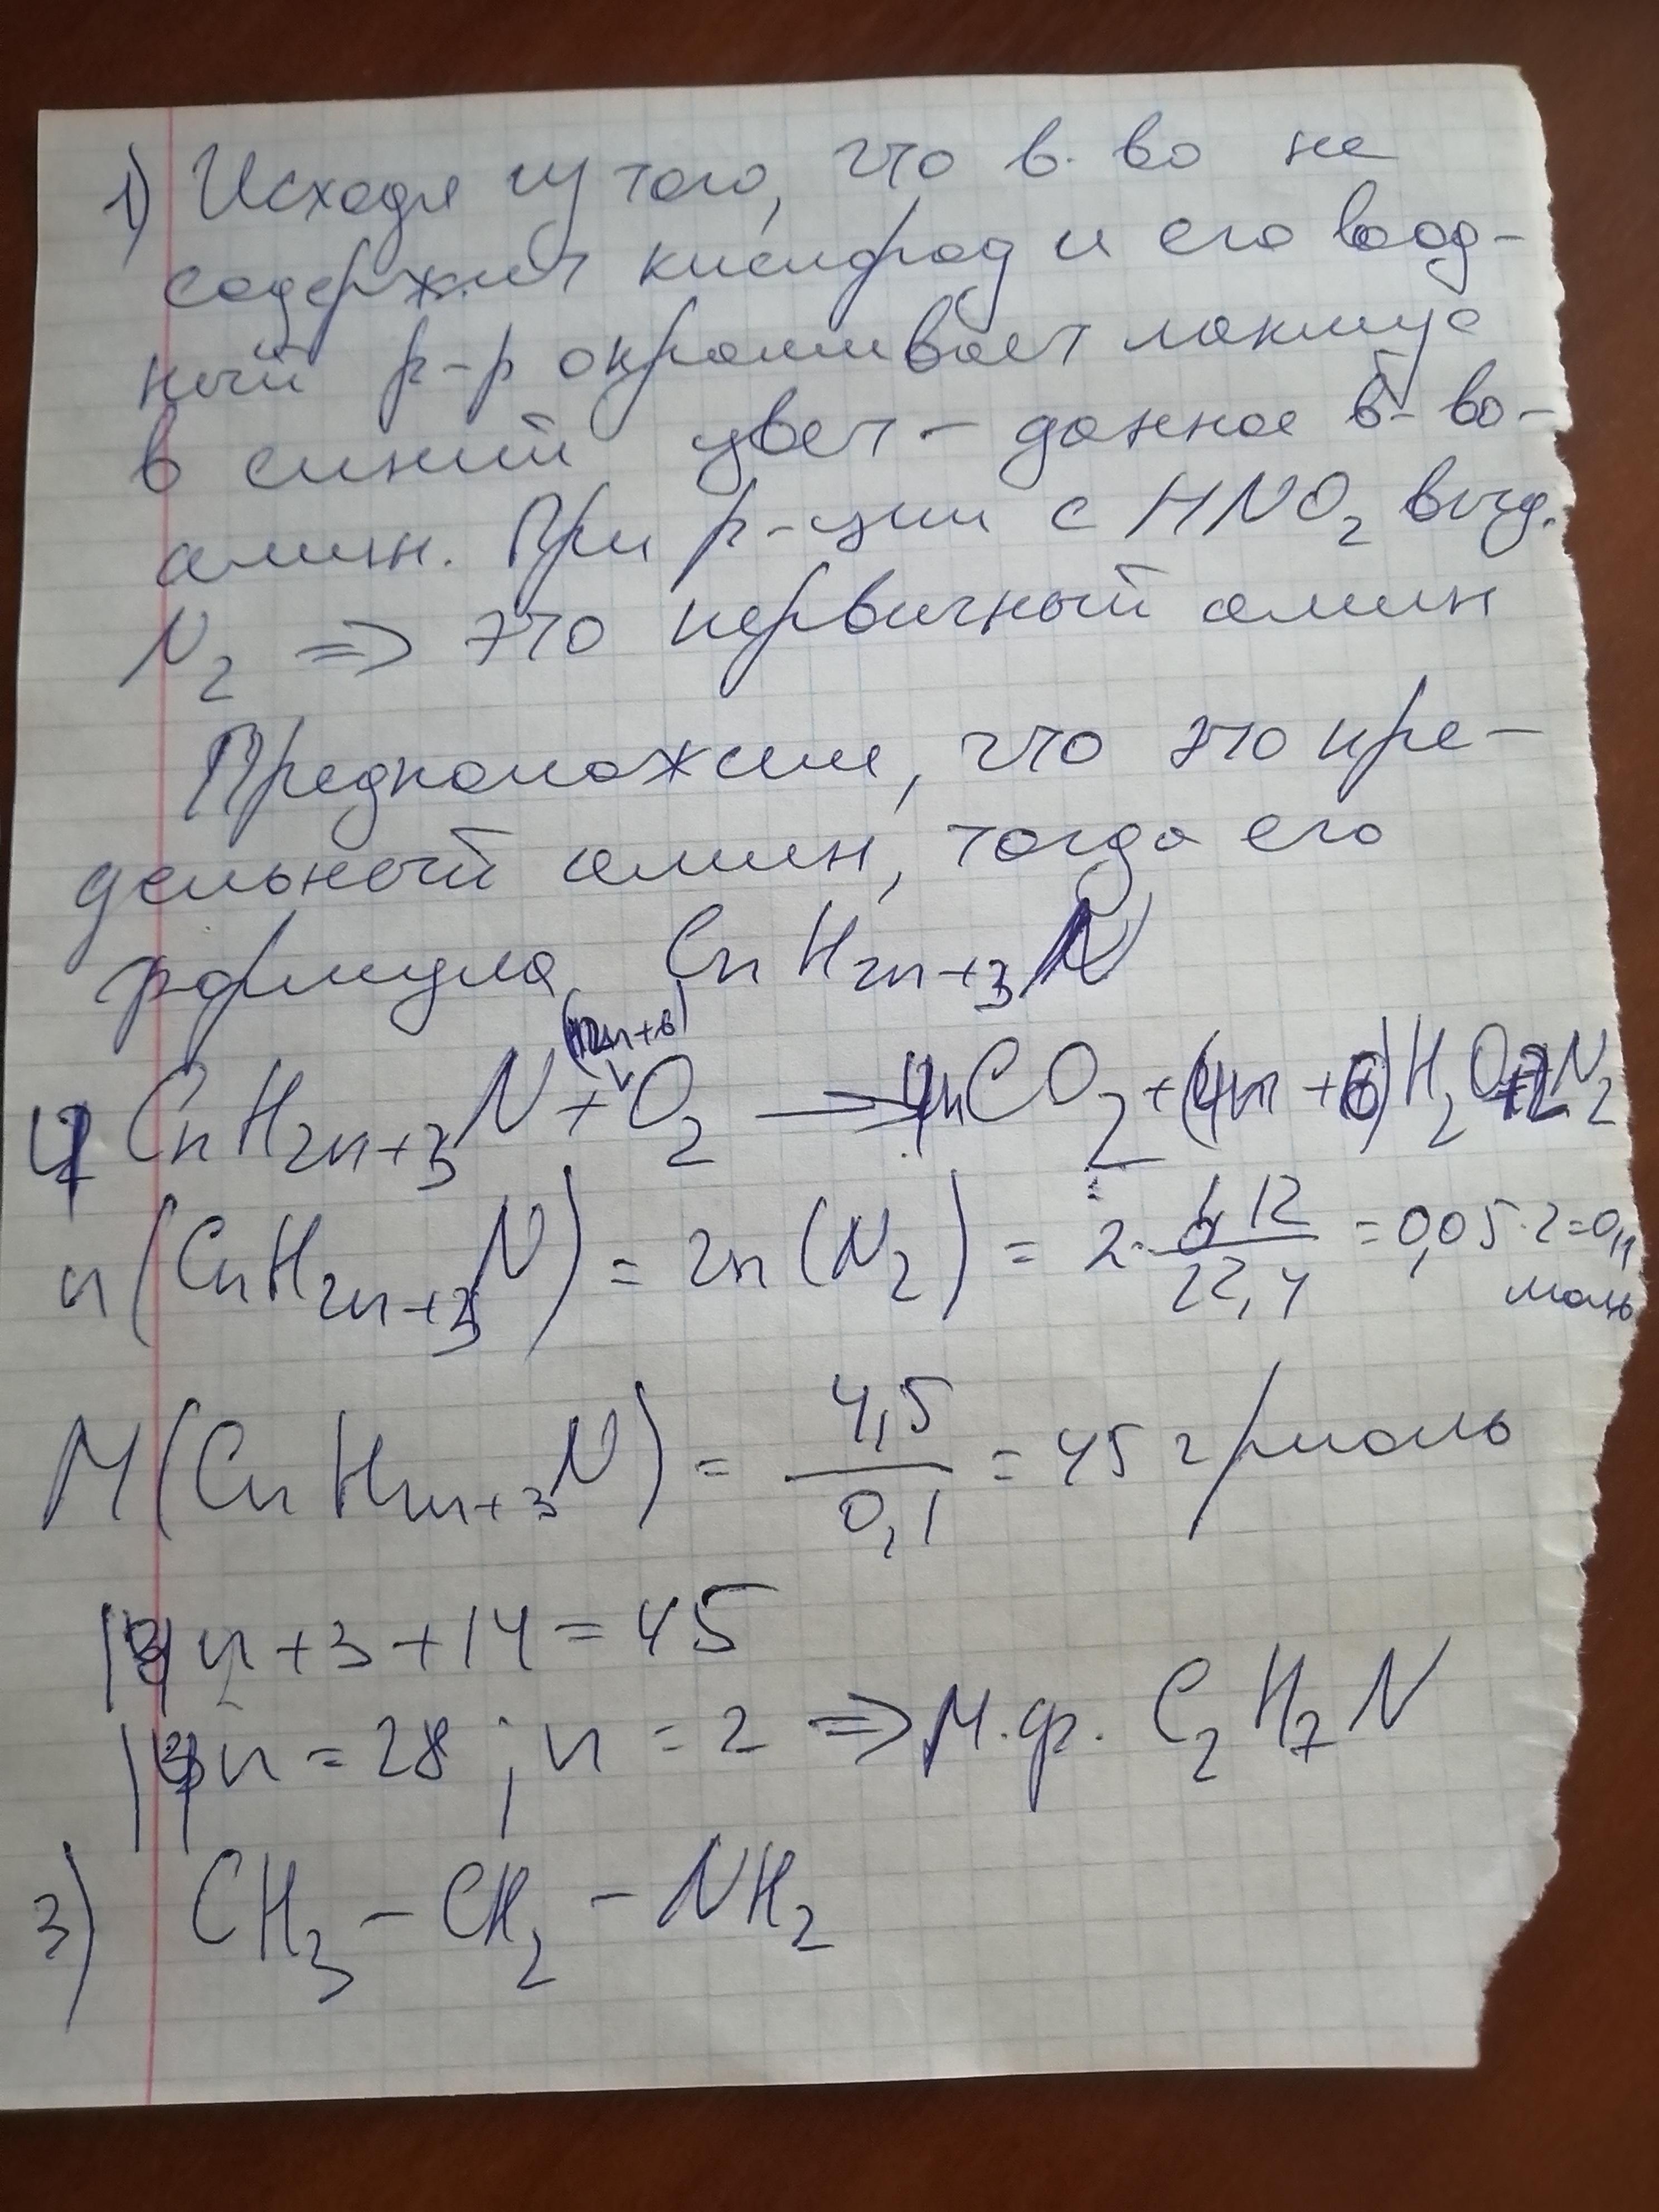 1) Исходя из того, что в-во не
содержит кислород и его вод-
ный р-р окрашивает лакмус
в синий цвет - данное в-во -
амин. При р-ции с HNO₂ выд.
N₂ => это первичный амин
Предположим, что это пре-
дельный амин, тогда его
формула CnH2n+3N
4CnH2n+3N + (12n+6)O₂ → 4nCO₂ + (4n+6)H₂O + 2N₂
n(CnH2n+3N) = 2n(N₂) = 2 · 1,12/22,4 = 0,05 · 2 = 0,1 моль
M(CnH2n+3N) = 4,5/0,1 = 45 г/моль
14n + 3 + 14 = 45
14n = 28 ; n = 2 => М.ф. C₂H₇N
3) CH₃ - CH₂ - NH₂